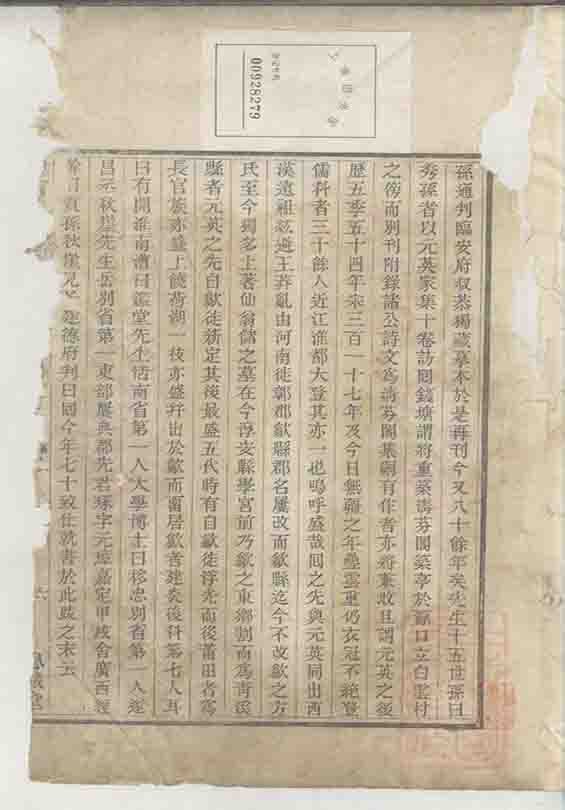 孫通判臨安府叔恭獨藏摹本於是再刊今又八十餘年矣先生十五世孫曰
秀孫省以元英家集十卷訪囘錢塘謂將重築清芬閣築亭於源口立白雲村
之傍而別刊附錄諸公詩文為清芬閣集嗣有作者亦將兼收且謂元英之後
歷五季五十四年宋三百一十七年及今日無疆之年疊雲重仍衣冠不絕登
儒科者三十餘人近江淮都大登其亦一也嗚呼盛哉囘之先與元英同出西
漢遠祖紘避王莽亂由河南徙郭郡歙縣郡名屢改而歙縣迄今不改歙之方
氏至今獨名上著仙翁儲之墓在今淳安縣學宮前乃歙之東鄉割而為青溪
縣者元英之先自歙徙新定其後最盛五代時有自歙徙浮光而後莆田者為
長官族亦盛上饒荷湖一枝亦盛幷出於歙而囘居歙善建炎後科第七人耳
曰有開淮南漕曰 堂先生恬南省第一人太學博士曰移忠別省第一人遂
昌 秋崖先生岳別省第一東部屢典郡先君琢字元 嘉定甲戌舍廣西經
幹囘 孫秋崖兄 建德府判曰囘今年七十致仕執書於此跋之末云
00928279